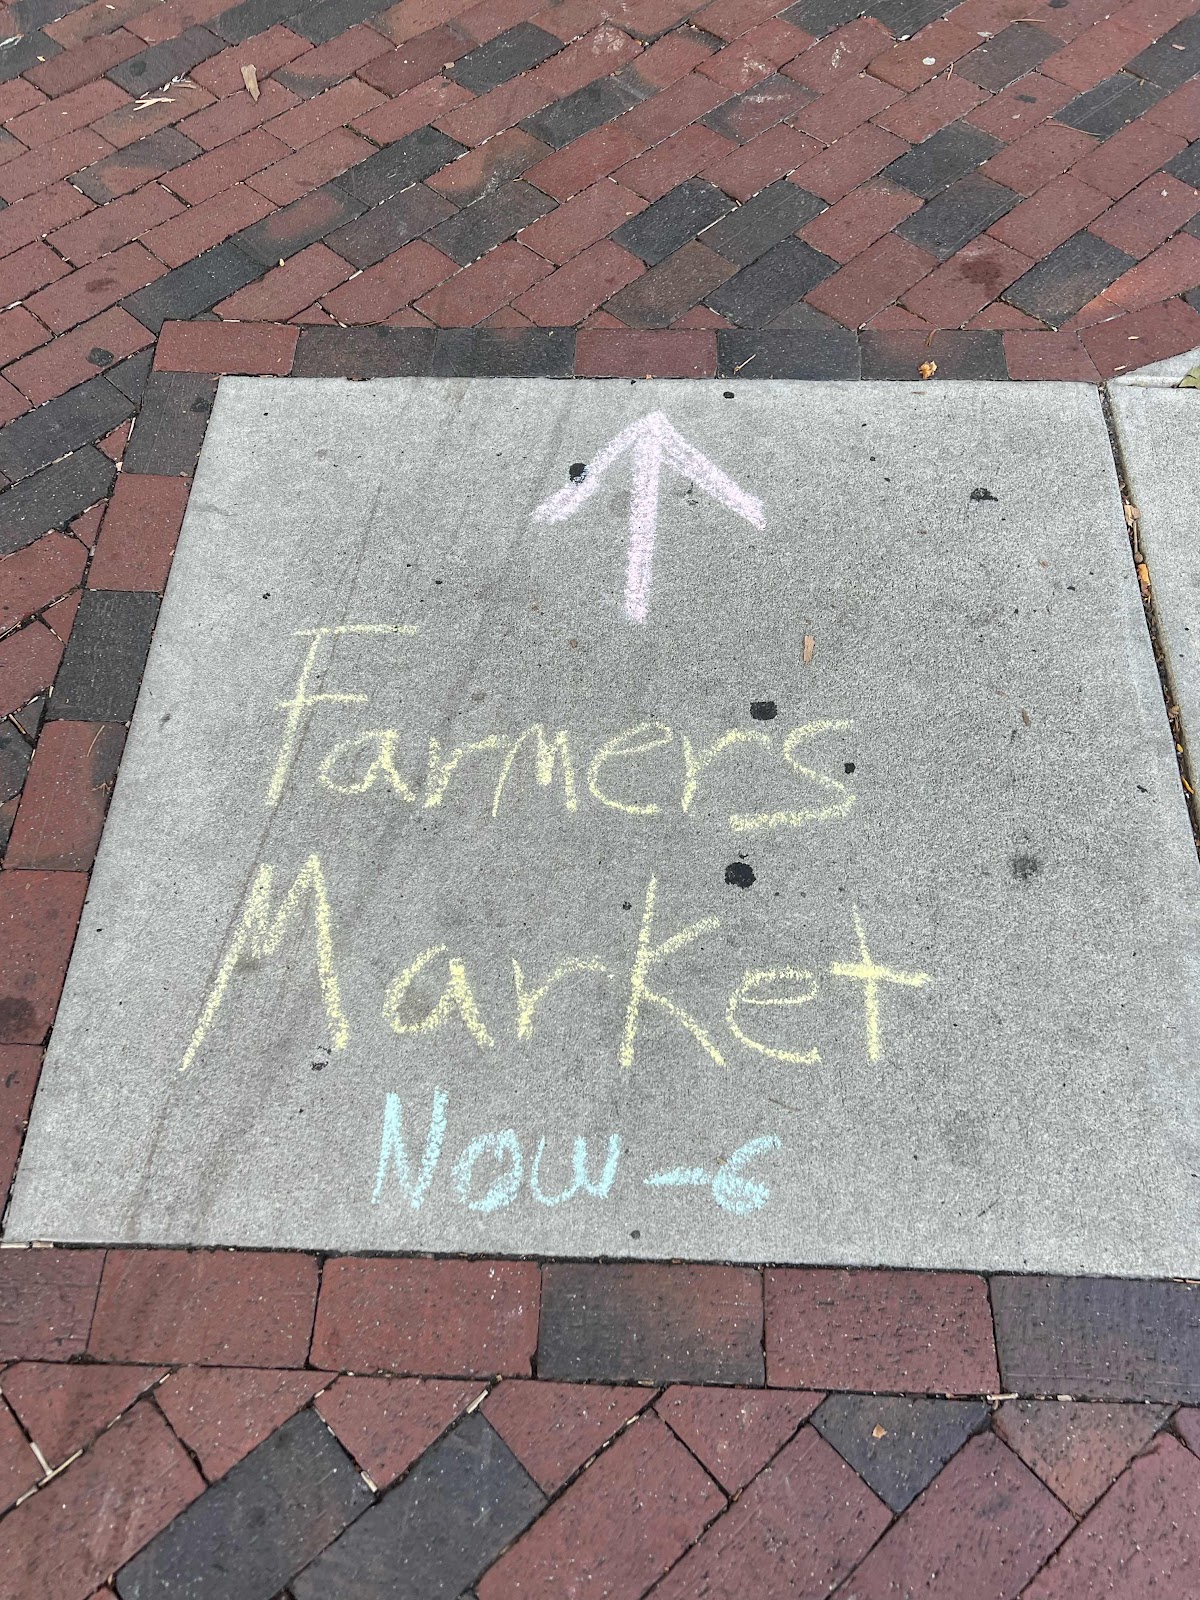 Farmers
Market
Now-6